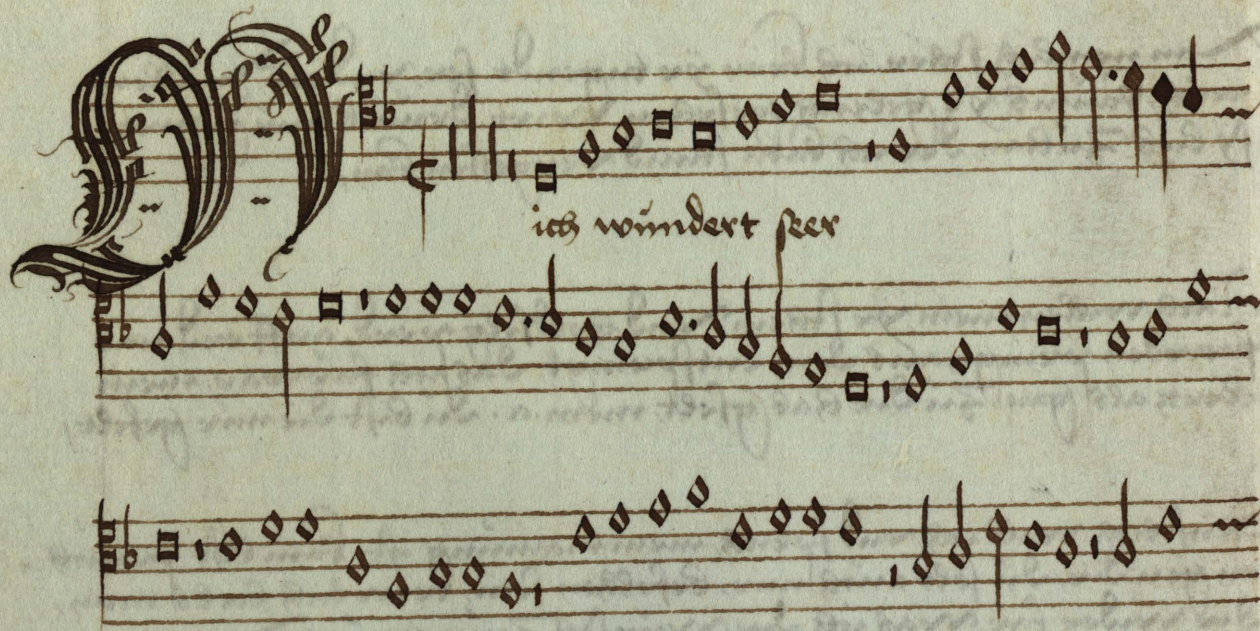 Mich wundert seer